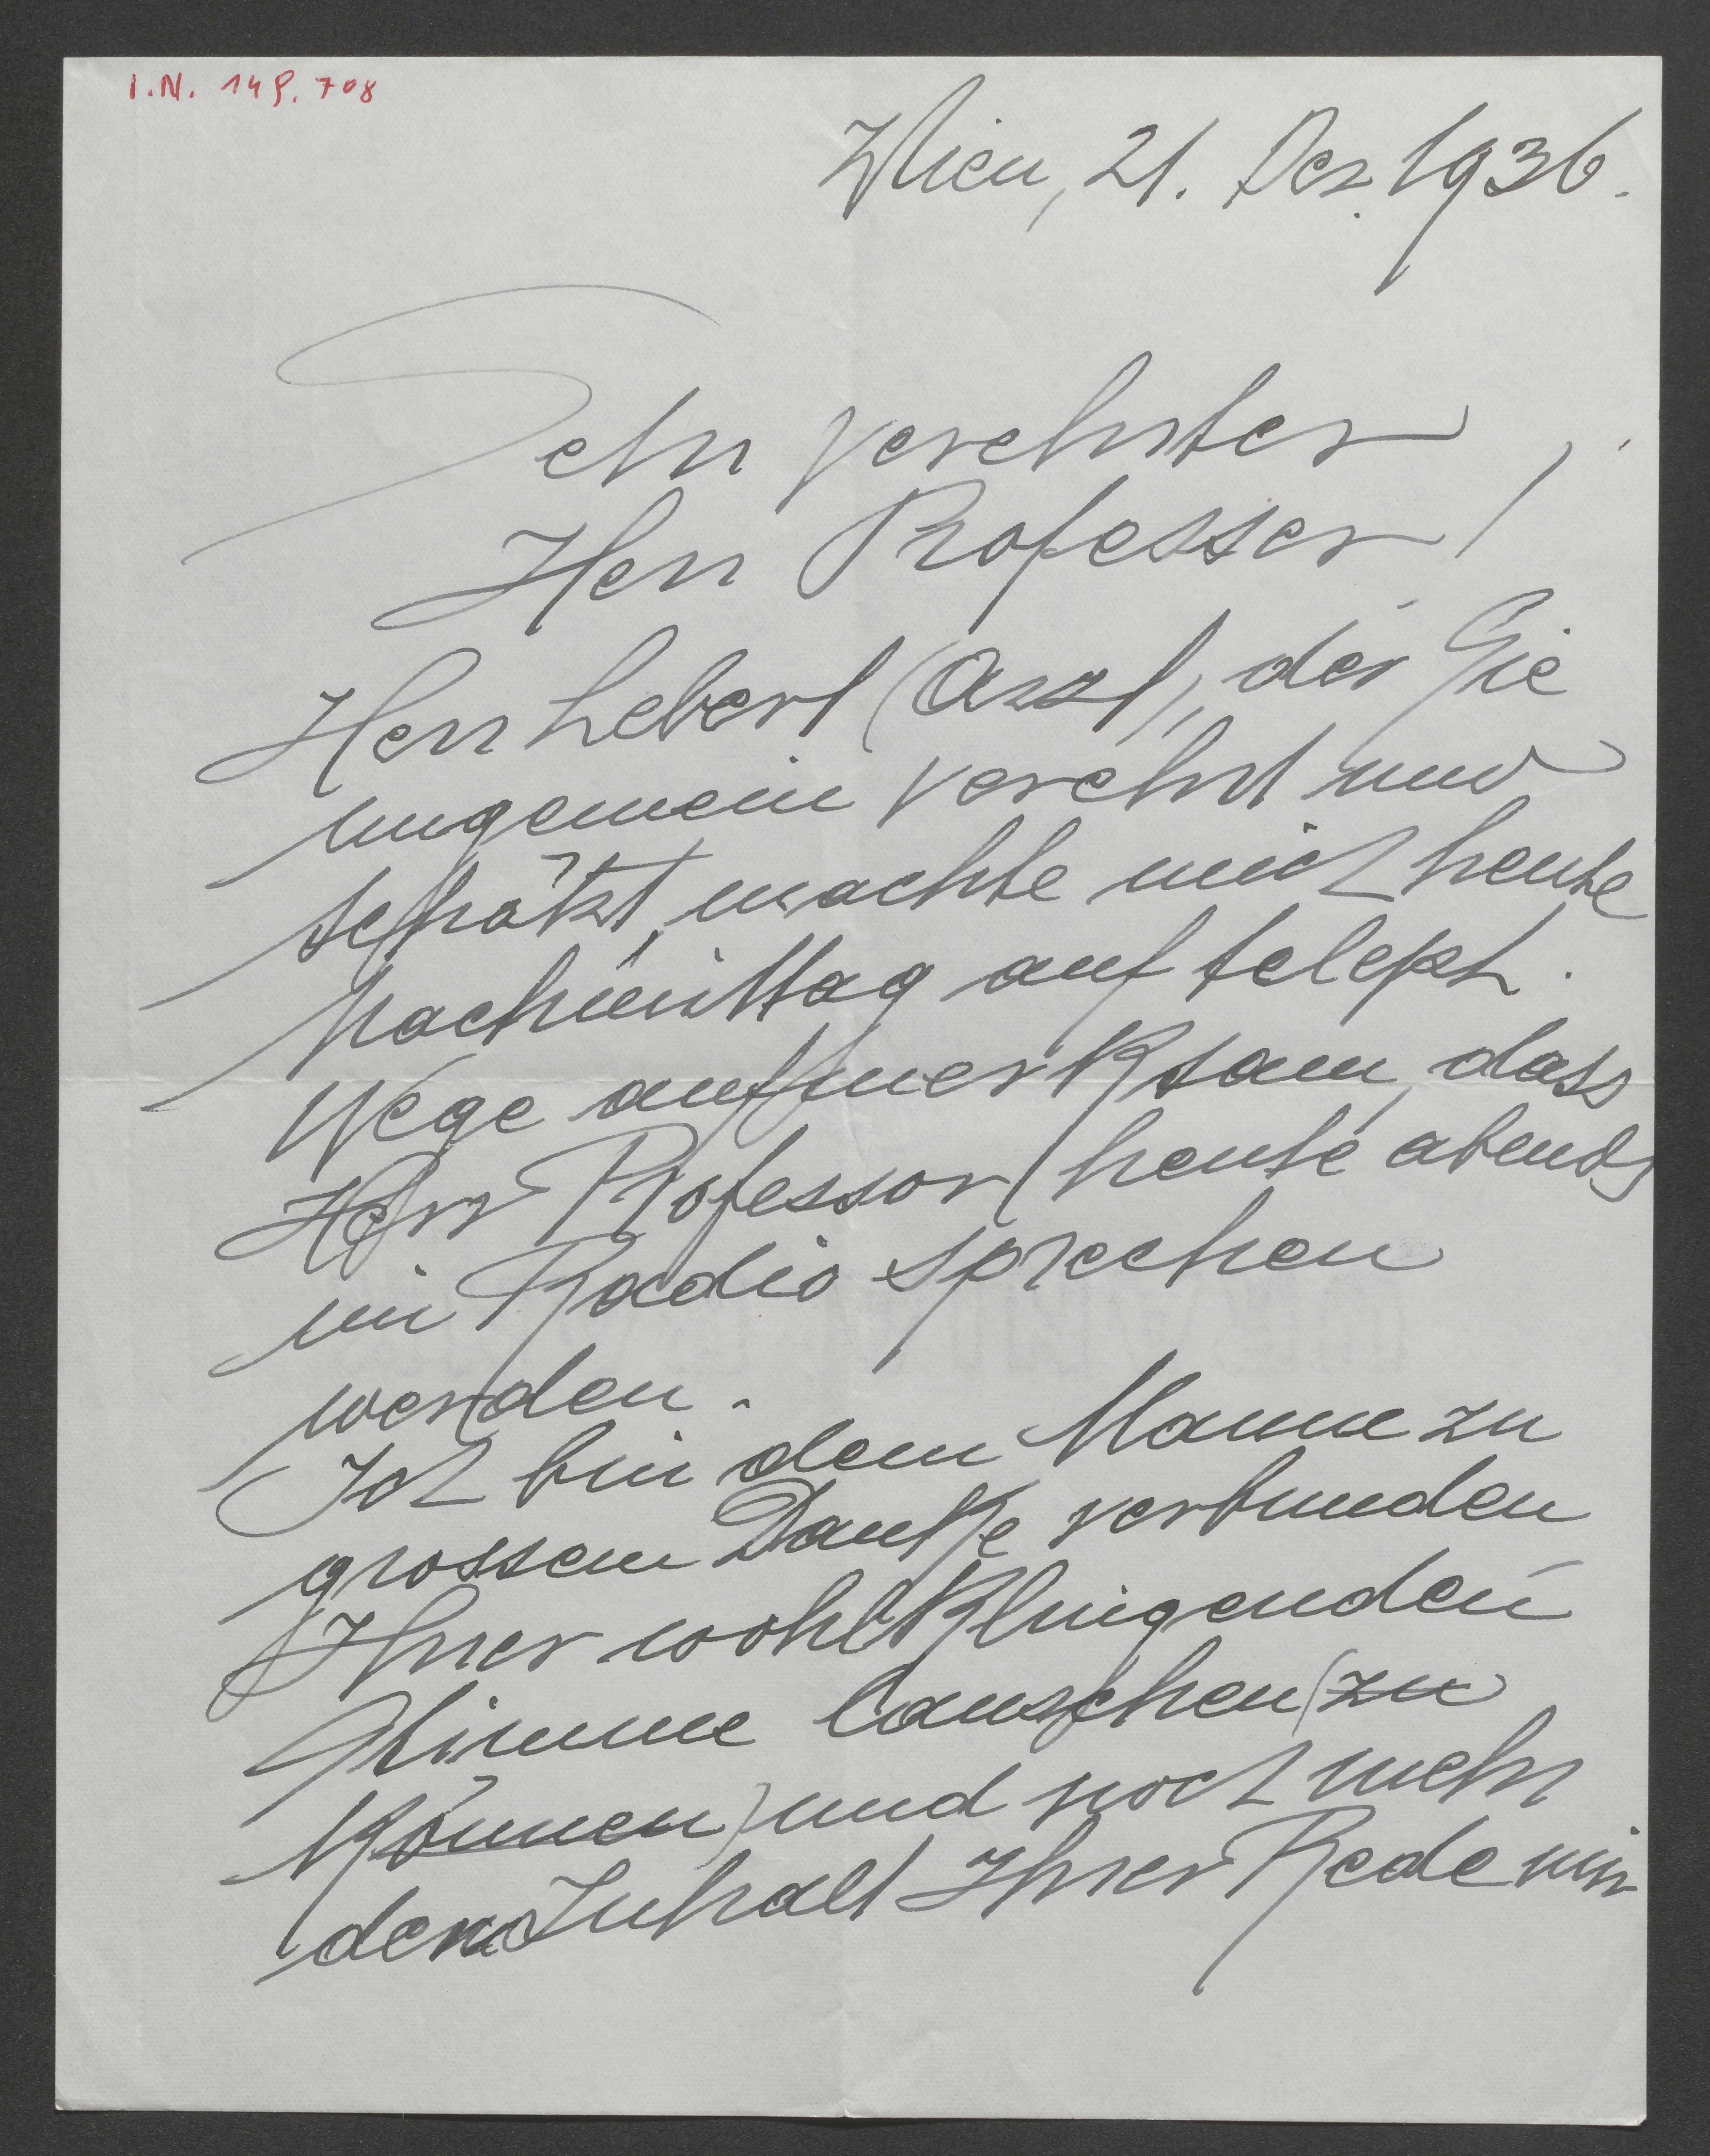 I.N. 149.708
Wien, 21. Dez. 1936.
Sehr verehrter
Herr Professor!
Herr Lebert (Arzt), der Sie
ungemein verehrt und
schätzt, machte mich heute
Nachmittag auf teleph.
Wege aufmerksam, dass
Herr Professor heute abends
im Radio sprechen
werden.
Ich bin dem Manne zu
grossem Danke verbunden
Ihrer wohlklingenden
Stimme lauschen (zu
können) und noch mehr
den Inhalt Ihrer Rede mir